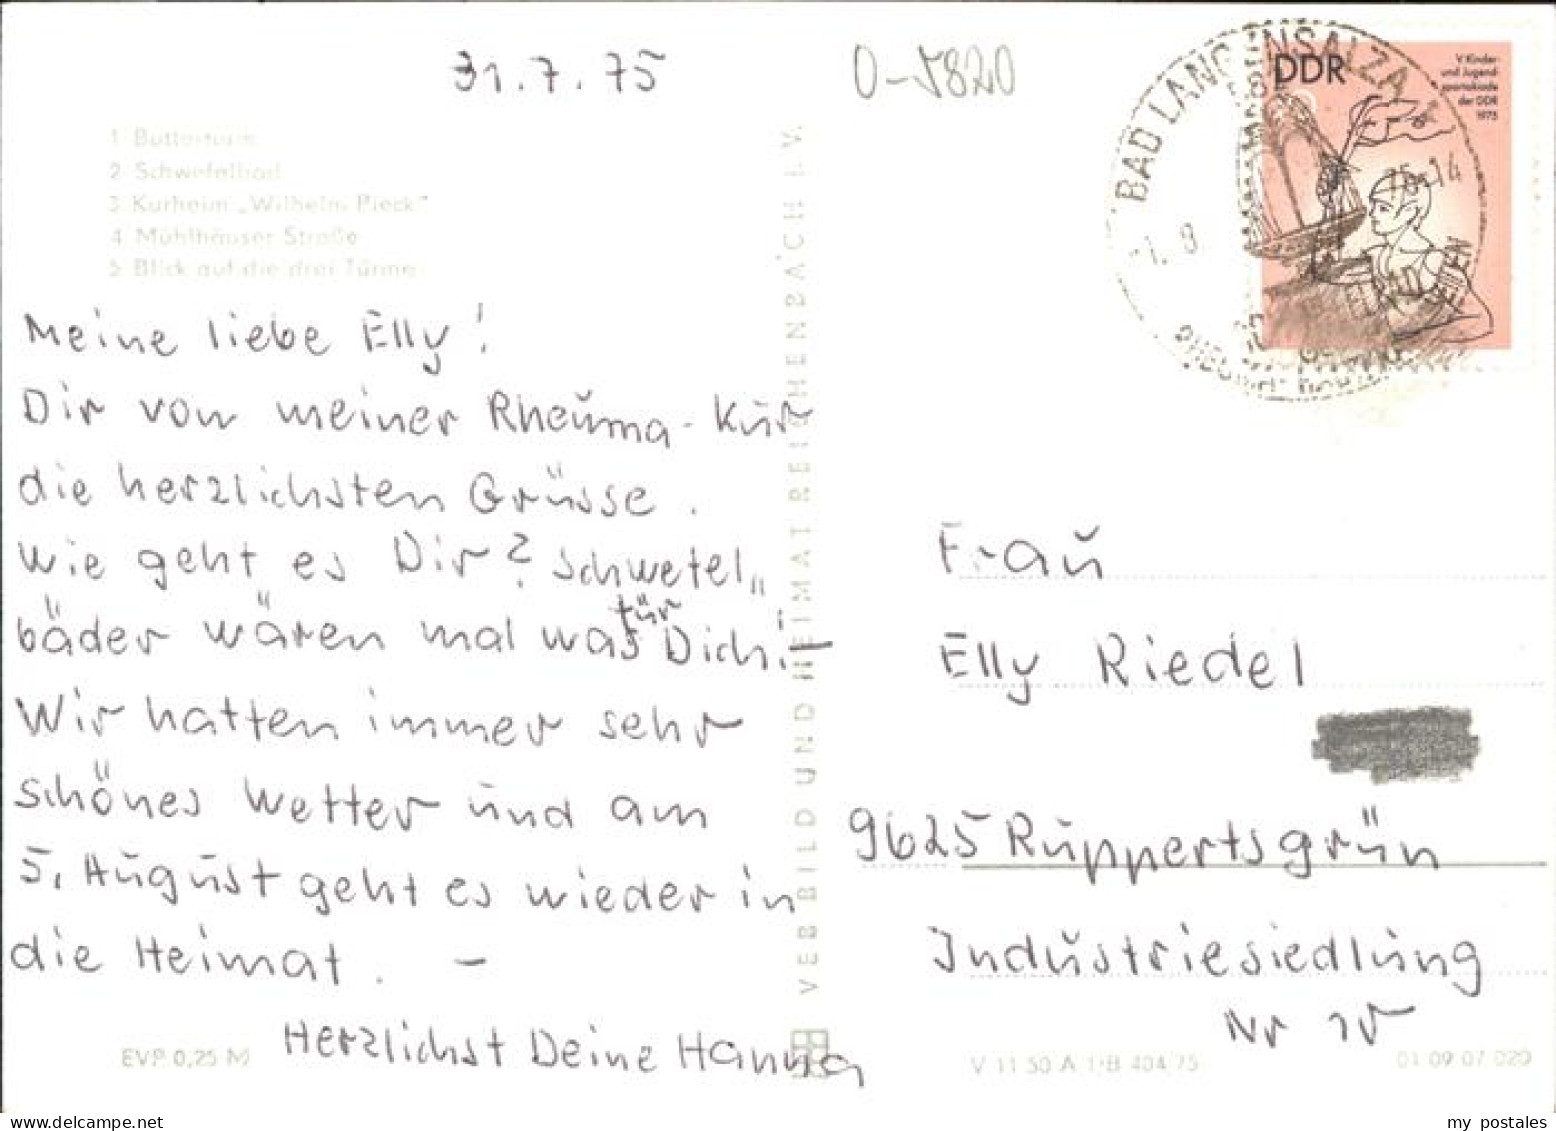 31.7.75
O-5820
1 Butterturm
2 Schwefelbad
3 Kurheim „Wilhelm Pieck"
4 Mühlhäuser Straße
5 Blick auf die drei Türme
Meine liebe Elly!
Dir von meiner Rheuma-Kur
die herzlichsten Grüsse.
Wie geht es Dir? Schwefel„
bäder wären mal was für Dich!–
Wir hatten immer sehr
schönes Wetter und am
5. August geht es wieder in
die Heimat. –
Herzlichst Deine Hanna
EVP 0,25 M
VEB BILD UND HEIMAT REICHENBACH I. V.
BAD LANGENSALZA 1
1. 8
75-14
DDR
V. Kinder-
und Jugend-
spartakiade
der DDR
1975
Frau
Elly Riedel
9625 Ruppertsgrün
Industriesiedlung
Nr
V 11 50 A 1/B 404/75
01 09 07 020
my postales